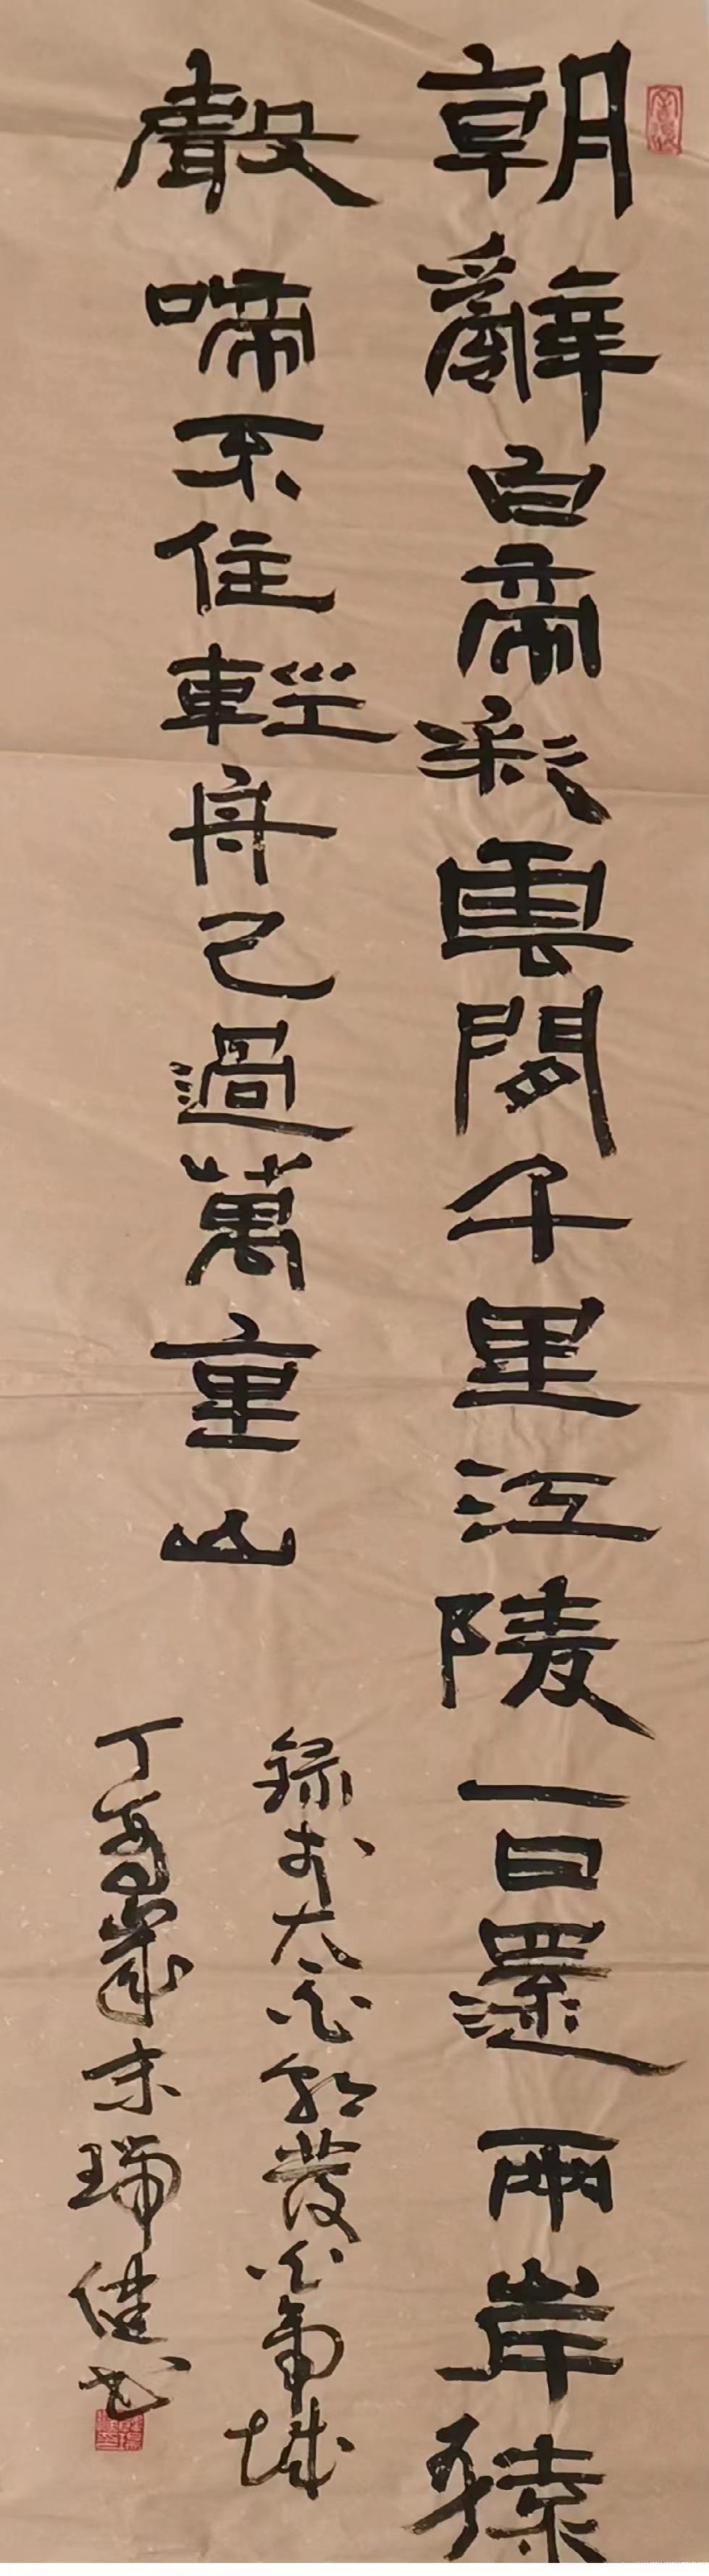 朝辭白帝彩雲間千里江陵一日還兩岸猿
聲啼不住輕舟已過萬重山
錄李太白發白帝城
丁酉歲末瑞健書